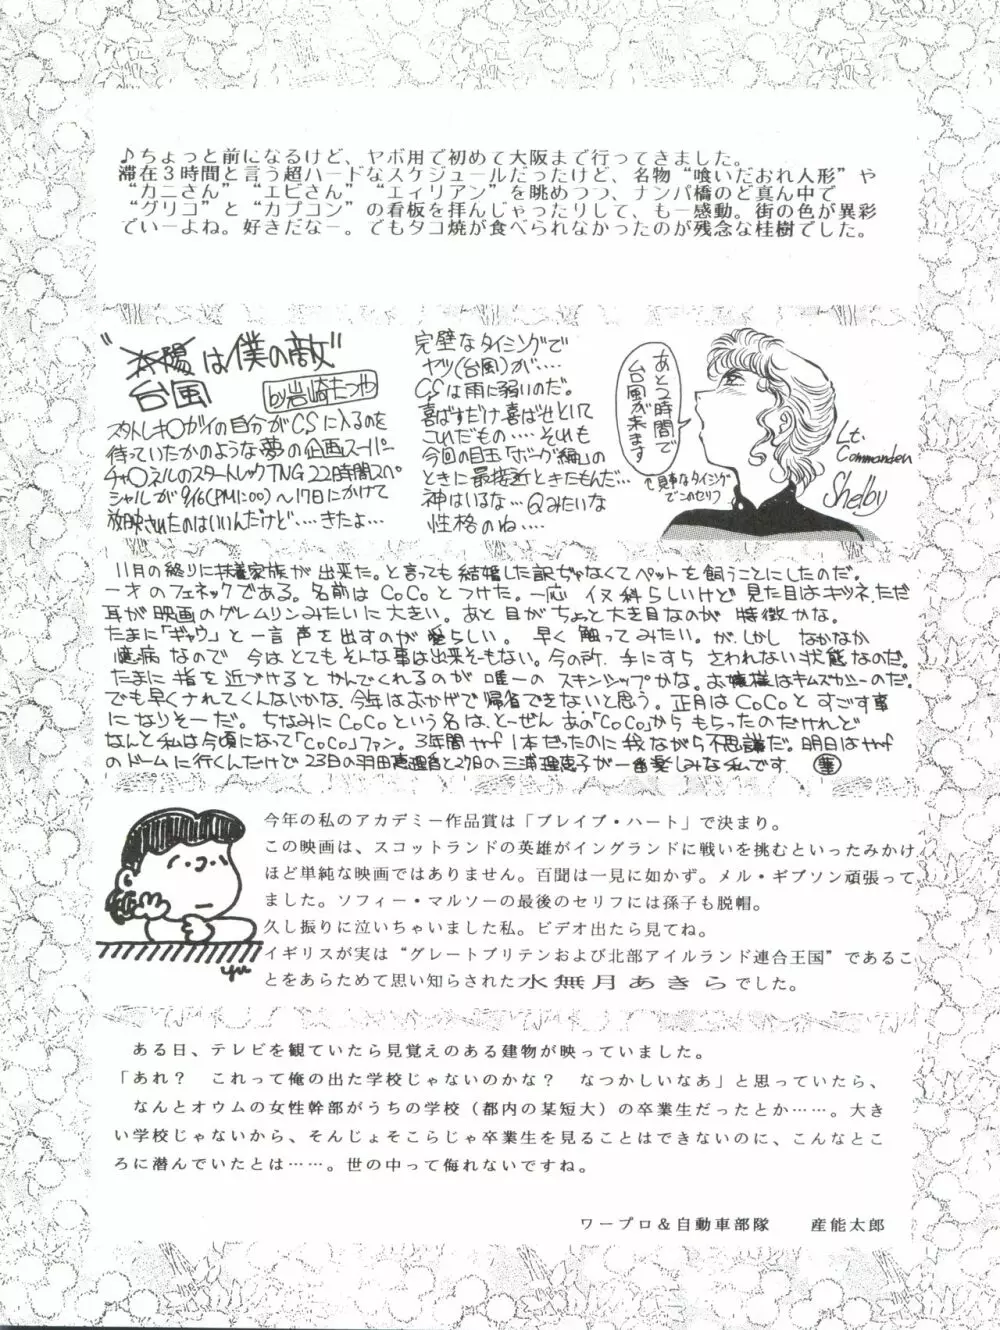 ♪ちょっと前になるけど、ヤボ用で初めて大阪まで行ってきました。
滞在３時間と言う超ハードなスケジュールだったけど、名物“喰いだおれ人形”や
“カニさん”“エビさん”“エィリアン”を眺めつつ、ナンパ橋のど真ん中で
“グリコ”と“カプコン”の看板を拝んじゃったりして、も一感動。街の色が異彩
でいーよね。好きだなー。でもタコ焼が食べられなかったのが残念な桂樹でした。
“太陽は僕の敵”
台風
by岩崎たつや
スタトレキ○ガイの自分がCSに入るのを
待っていたかのような夢の企画スーパー
チャ○ネルのスタートレックTNG22時間スペ
シャルが9/16(PM1:00)～17日にかけて
放映されたのはいいんだけど‥‥きたよ…
完璧なタイミングで
ヤツ(台風)が‥‥
CSは雨に弱いのだ。
喜ばすだけ喜ばせといて
これだもの‥‥それも
今回の目玉「ボーグ編」の
ときに最接近ときたもんだ…
神はいるな…Qみたいな
性格のね‥‥
あと2時間で
台風が来ます
↑見事なタイミング
でこのセリフ
Lt.
Commander
Shelby
11月の終りに扶養家族が出来た。と言っても結婚した訳ぢゃなくてペットを飼うことにしたのだ。
一才のフェネックである。名前はCoCoとつけた。一応イヌ科らしいけど見た目はキツネ、ただ
耳が映画のグレムリンみたいに大きい。あと目がちょっと大き目なのが特徴かな。
たまに「ギャウ」と一言声を出すのが愛らしい。早く触ってみたい。が、しかしなかなか
憶病なので今はとてもそんな事は出来そーもない。今の所、手にすらさわれない状態なのだ。
たまに指を近づけるとかんでくれるのが唯一のスキンシップかな。お嬢様はキムズカシーのだ。
でも早くナれてくんないかな。今年はおかげで帰省できないと思う。正月はCoCoとすごす事
になりそーだ。ちなみにCoCoという名は、とーぜんあの「CoCo」からもらったのだけれど
なんと私は今頃になって「CoCo」ファン。3年間ゃf1本だったのに我ながら不思議だ。明日はゃf
のドームに行くんだけど23日の羽田恵理香と27日の三浦理恵子が一番楽しみな私です 華
今年の私のアカデミー作品賞は「ブレイブ・ハート」で決まり。
この映画は、スコットランドの英雄がイングランドに戦いを挑むといったみかけ
ほど単純な映画ではありません。百聞は一見に如かず。メル・ギブソン頑張って
ました。ソフィー・マルソーの最後のセリフには孫子も脱帽。
久し振りに泣いちゃいました私。ビデオ出たら見てね。
イギリスが実は“グレートブリテンおよび北部アイルランド連合王国”であるこ
とをあらためて思い知らされた水無月あきらでした。
yu
ある日、テレビを観ていたら見覚えのある建物が映っていました。
「あれ？　これって俺の出た学校じゃないのかな？　なつかしいなあ」と思っていたら、
なんとオウムの女性幹部がうちの学校（都内の某短大）の卒業生だったとか……。大き
い学校じゃないから、そんじょそこらじゃ卒業生を見ることはできないのに、こんなとこ
ろに潜んでいたとは……。世の中って侮れないですね。
ワープロ＆自動車部隊　　産能太郎